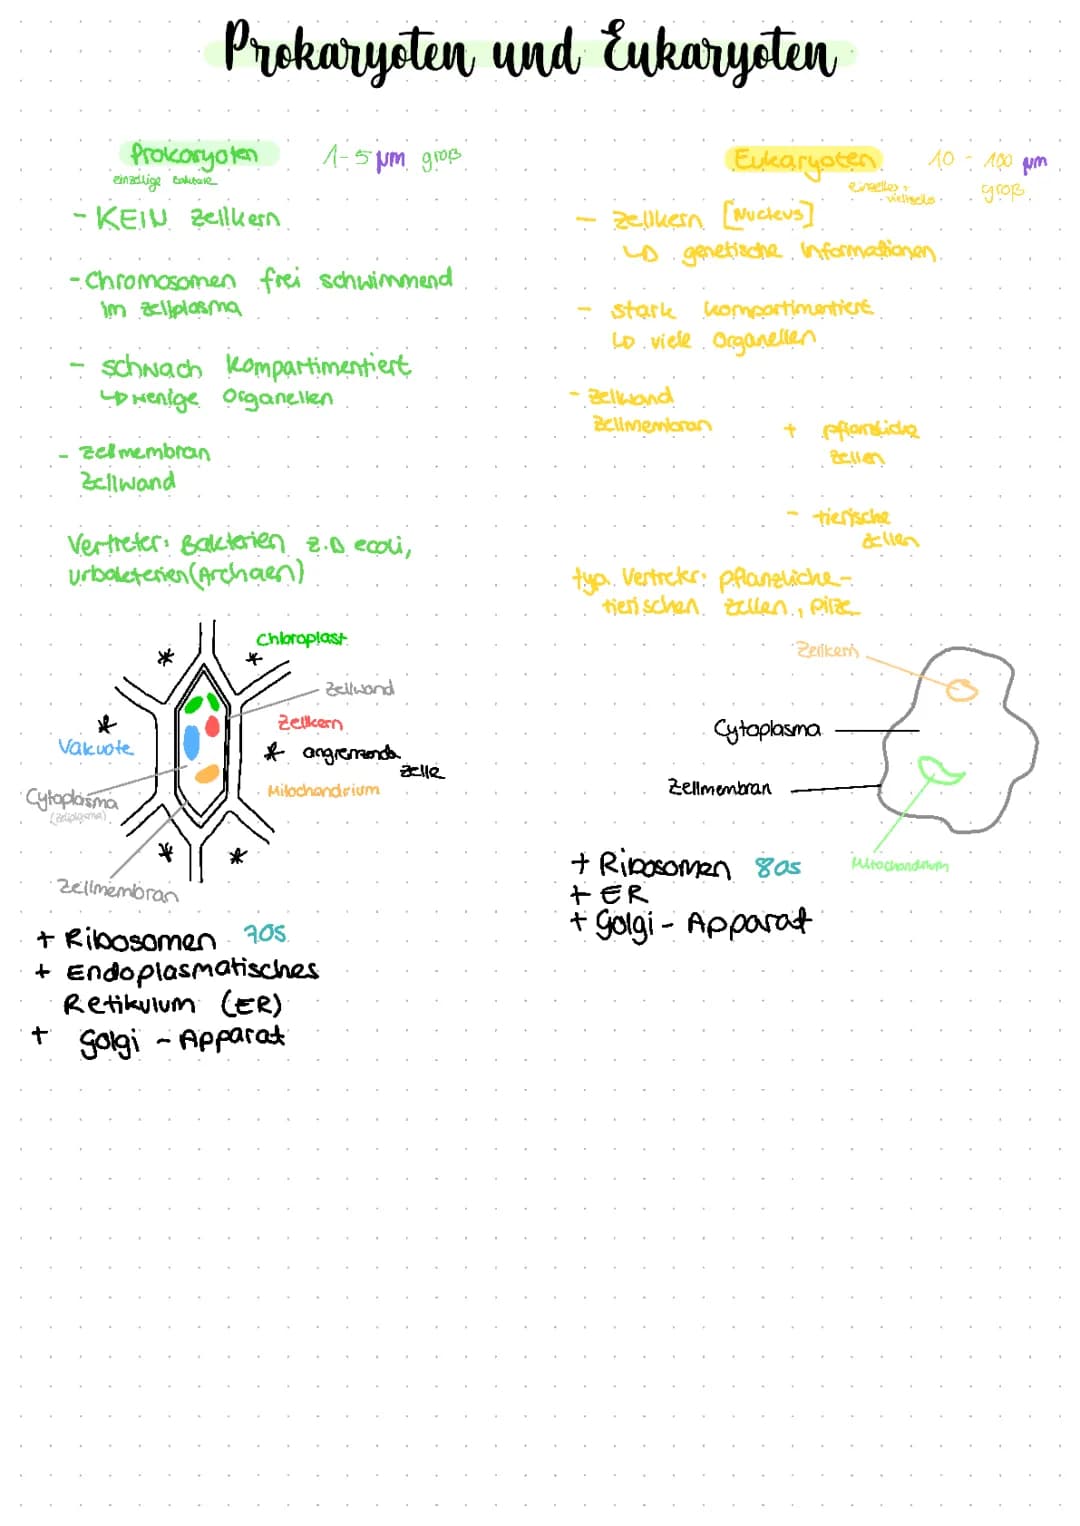 Prokaryoten und Eukaryoten
Prokaryoten 1-5 µm groß
einzellige
- KEIN Zellkern
- Chromosomen frei schwimmend
im Zellplasma
- schwach kompartimentiert
↳ wenige Organellen
- Zellmembran
Zellwand
Vertreter: Bakterien z.B ecoli,
Urbakterien (Archaen)
Chloroplast
Zellwand
Zellkern
Vakuole
* angrenzende
Zelle
Mitochondrium
Cytoplasma
(Zellplasma)
Zellmembran
+ Ribosomen 70s
+ Endoplasmatisches
Retikulum (ER)
+ Golgi - Apparat
Eukaryoten 10 - 100 µm
groß
einzeller +
vielzeller
- Zellkern [Nucleus]
↳ genetische Informationen
- stark kompartimentiert
↳ viele Organellen
- Zellwand
Zellmembran
+ pflanzliche
Zellen
- tierische
Zellen
typ. Vertreter: pflanzliche-
tierischen Zellen, Pilze
Zellkern
Cytoplasma
Zellmembran
Mitochondrium
+ Ribosomen 80s
+ ER
+ Golgi - Apparat